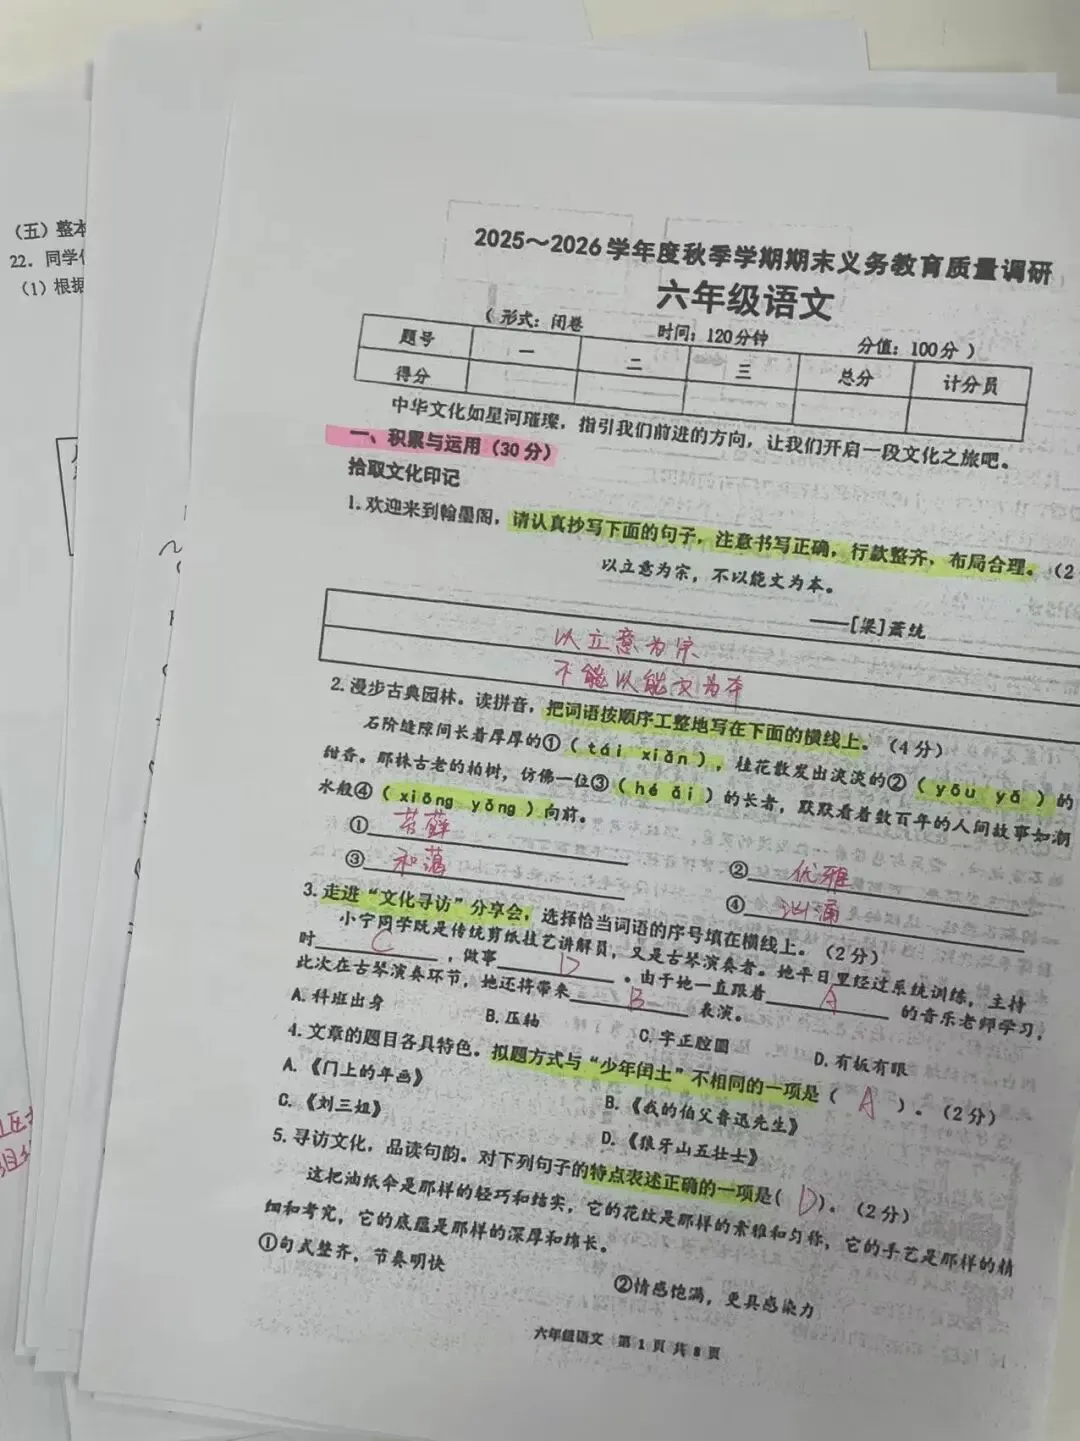 （五）整本
22. 同学们
（1）根据
2025～2026学年度秋季学期期末义务教育质量调研
六年级语文
（形式：闭卷 时间：120分钟 分值：100分）
题号 一 二 三 总分 计分员
得分
中华文化如星河璀璨，指引我们前进的方向，让我们开启一段文化之旅吧。
一、积累与运用（30分）
拾取文化印记
1. 欢迎来到翰墨阁，请认真抄写下面的句子，注意书写正确，行款整齐，布局合理。（2
以立意为宗，不以能文为本。
——[梁]萧统
以立意为宗
不能以能文为本
2. 漫步古典园林。读拼音，把词语按顺序工整地写在下面的横线上。（4分）
石阶缝隙间长着厚厚的①（tái xiǎn），桂花散发出淡淡的②（yōu yǎ）的
甜香。那株古老的柏树，仿佛一位③（hé ǎi）的长者，默默看着数百年的人间故事如潮
水般④（xiōng yǒng）向前。
①苔藓
②优雅
③和蔼
④汹涌
3. 走进“文化寻访”分享会，选择恰当词语的序号填在横线上。（2分）
小宁同学既是传统剪纸技艺讲解员，又是古琴演奏者。她平日里经过系统训练，主持
时 C ，做事 D 。由于她一直跟着 A 的音乐老师学习，
此次在古琴演奏环节，她还将带来 B 表演。
A. 科班出身 B. 压轴 C. 字正腔圆 D. 有板有眼
4. 文章的题目各具特色。拟题方式与“少年闰土”不相同的一项是（ A ）。（2分）
A. 《门上的年画》 B. 《我的伯父鲁迅先生》
C. 《刘三姐》 D. 《狼牙山五壮士》
5. 寻访文化，品读句韵。对下列句子的特点表述正确的一项是（ D ）。（2分）
这把油纸伞是那样的轻巧和结实，它的花纹是那样的素雅和匀称，它的手艺是那样的精
细和考究，它的底蕴是那样的深厚和绵长。
①句式整齐，节奏明快 ②情感饱满，更具感染力
六年级语文 第 1 页 共 8 页